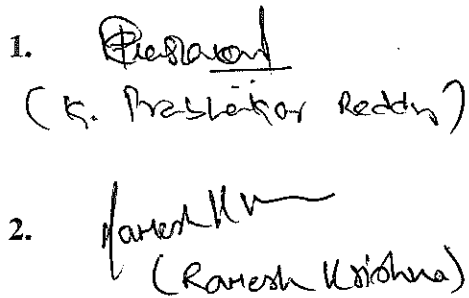 1.
(K. Prabhakar Reddy)
2. Ramesh K
(Ramesh Krishna)